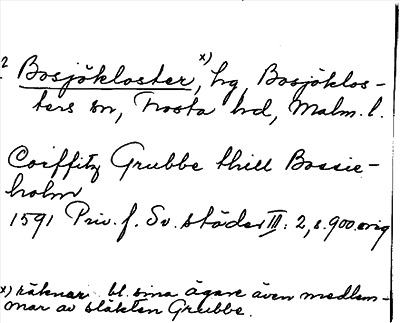 ? Bosjökloster, x) hg, Bosjöklos-
ters sn, Frosta hd, Malm. l.
Coiffitz Grubbe thill Bossie-
holm
1591 Priv. f. Sv. städer III: 2, s. 900. orig
x) räknar bl. sina ägare även medlem-
mar av släkten Grubbe.